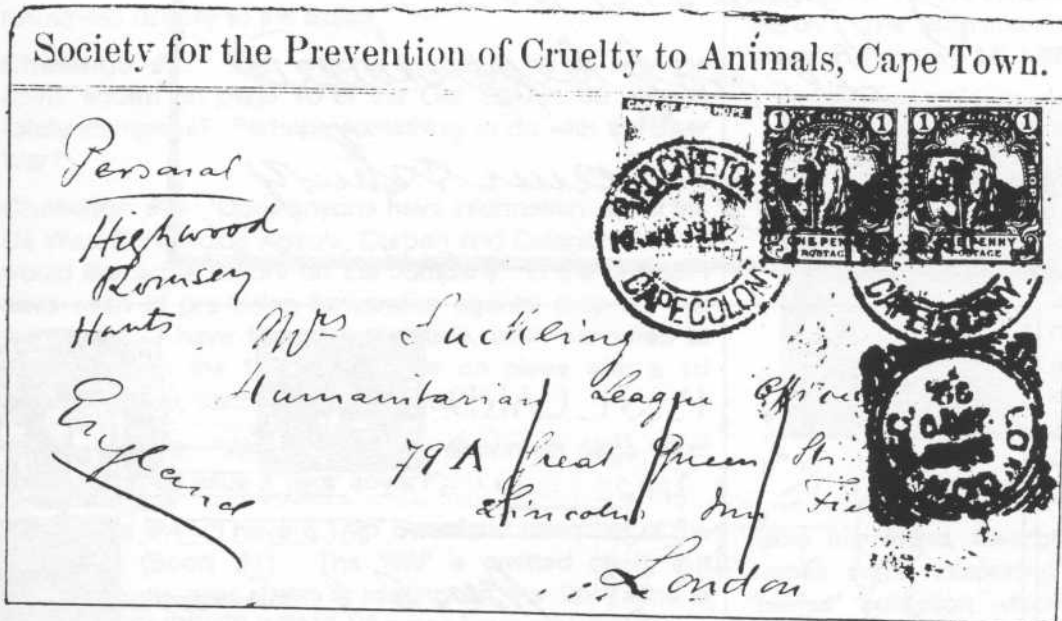 Society for the Prevention of Cruelty to Animals, Cape Town.
Personal
Highwood
Romsey
Hants
England
Mrs Suckling
Humanitarian League Office
79A Great Queen St
Lincolns Inn Fie
London
CAPE COLONY
1 1
ONE PEN
POSTAG
1 1
E PENNY
POSTAGE
CAPE COLONY